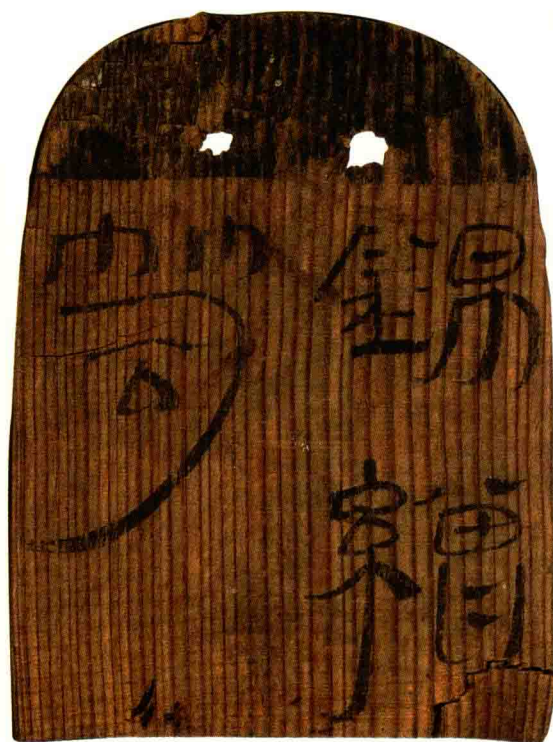 錫繒
笥